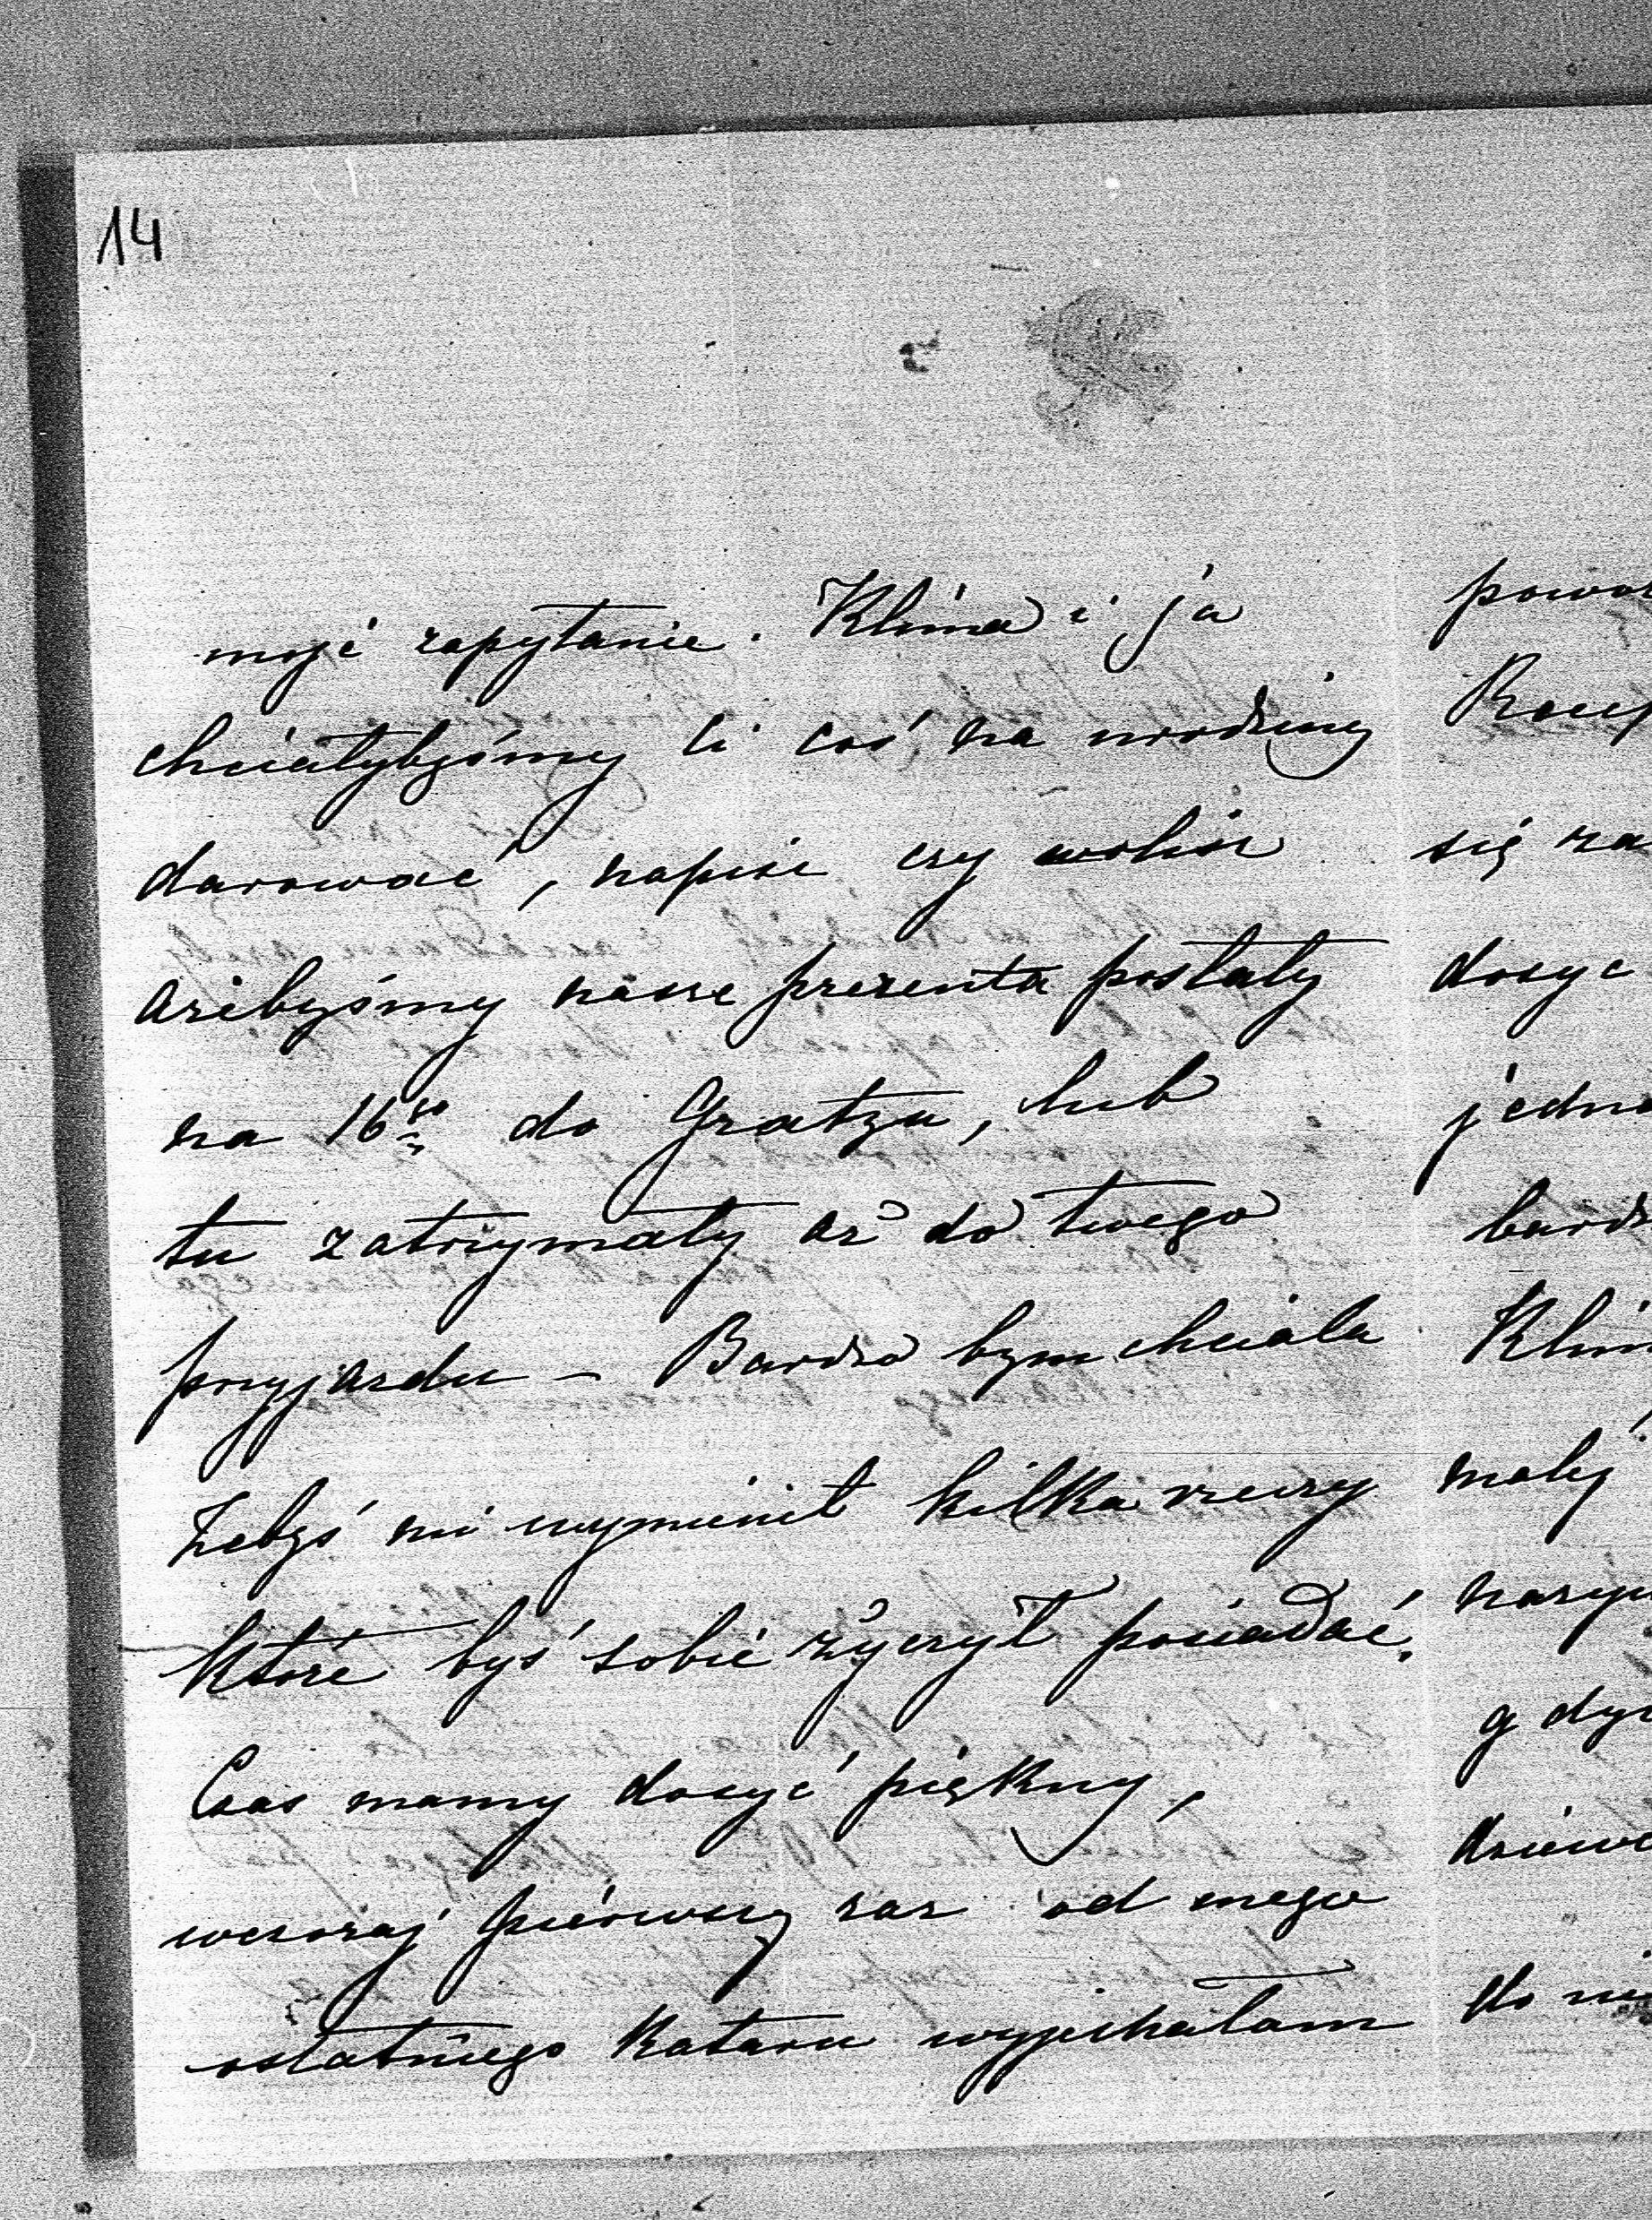 14
mojé zapytanie. Klima i ja
chciałybyśmy Ci coś na urodziny
darować, napisz czy wolisz
azebyśmy nasze prezenta posłały
na 16go do Gratzu, lub
tu zatrzymały az do twego
przyjazdu – Bardzo bym chciała
Zebyś mi wymienił kilka rzeczy
które byś sobie życzył posiadać.
Czas mamy dosyć piękny,
wczoraj piérwszy raz od mego
ostatniego Kataru wyjechałam
się za
dosyc
jedn
bardz
Klim
małý
gdy
do ni